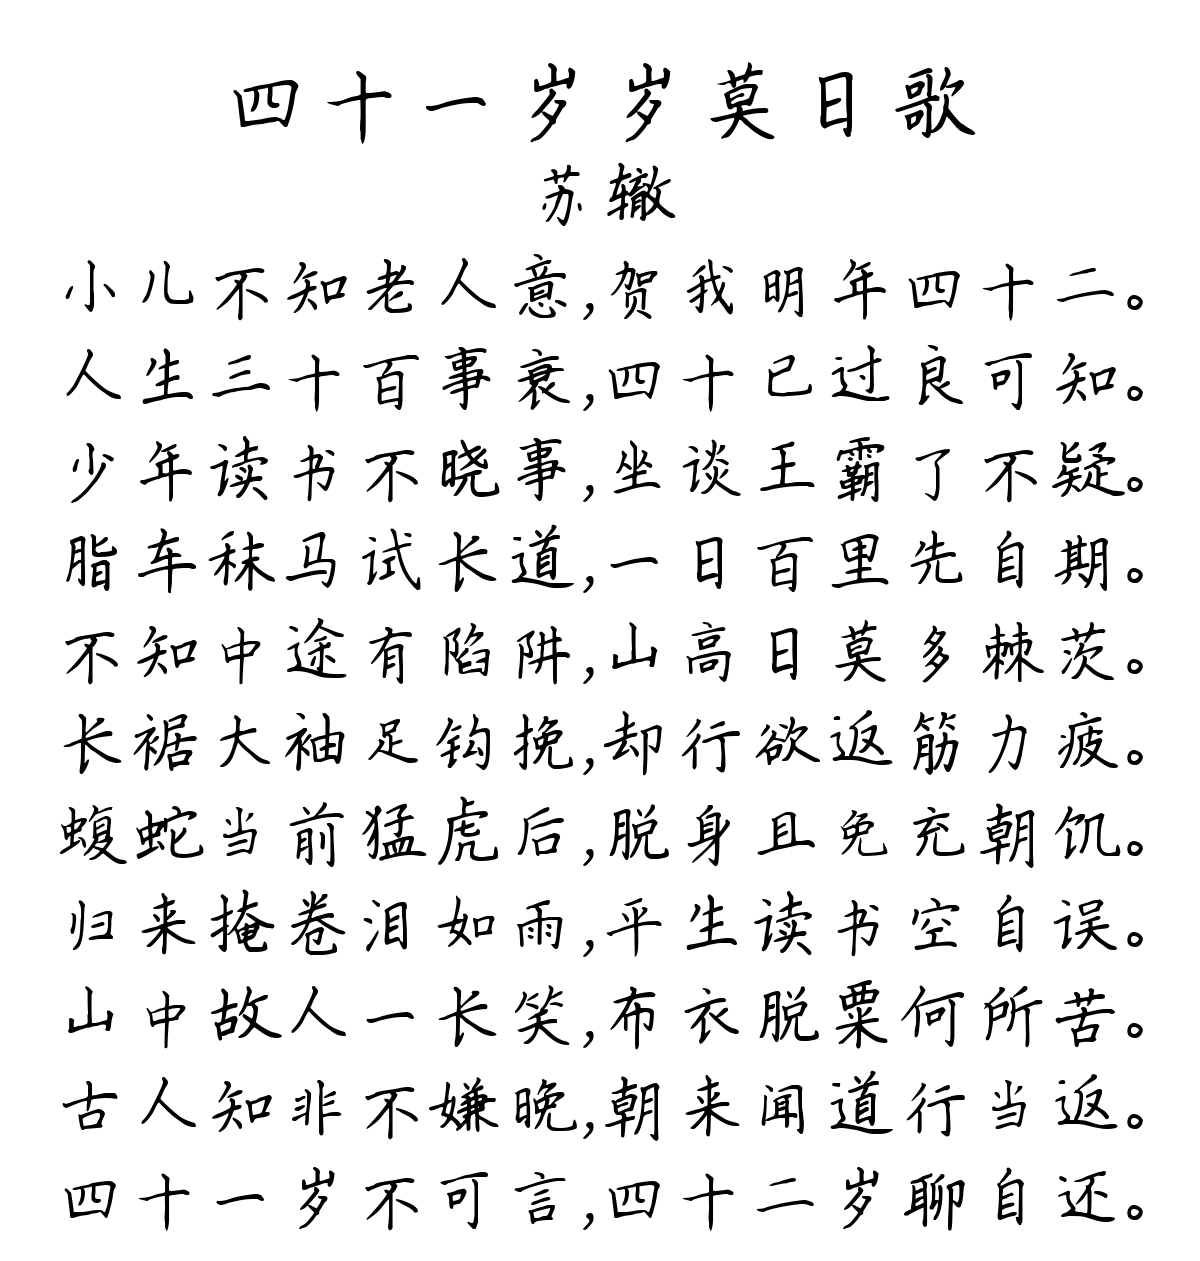 四十一岁岁莫日歌
苏辙
小儿不知老人意,贺我明年四十二。
人生三十百事衰,四十已过良可知。
少年读书不晓事,坐谈王霸了不疑。
脂车秣马试长道,一日百里先自期。
不知中途有陷阱,山高日莫多棘茨。
长裾大袖足钩挽,却行欲返筋力疲。
蝮蛇当前猛虎后,脱身且免充朝饥。
归来掩卷泪如雨,平生读书空自误。
山中故人一长笑,布衣脱粟何所苦。
古人知非不嫌晚,朝来闻道行当返。
四十一岁不可言,四十二岁聊自还。